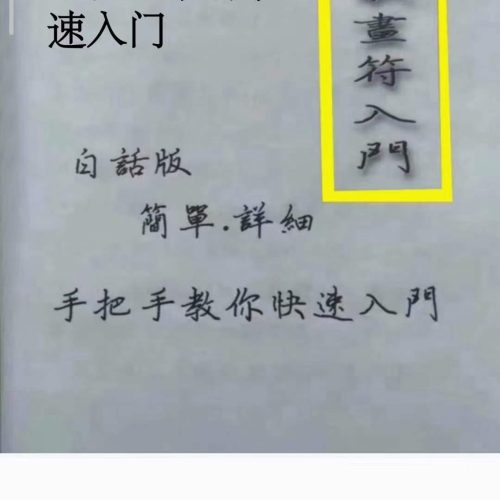 速入门
畫符入門
白話版
簡單.詳細
手把手教你快速入門